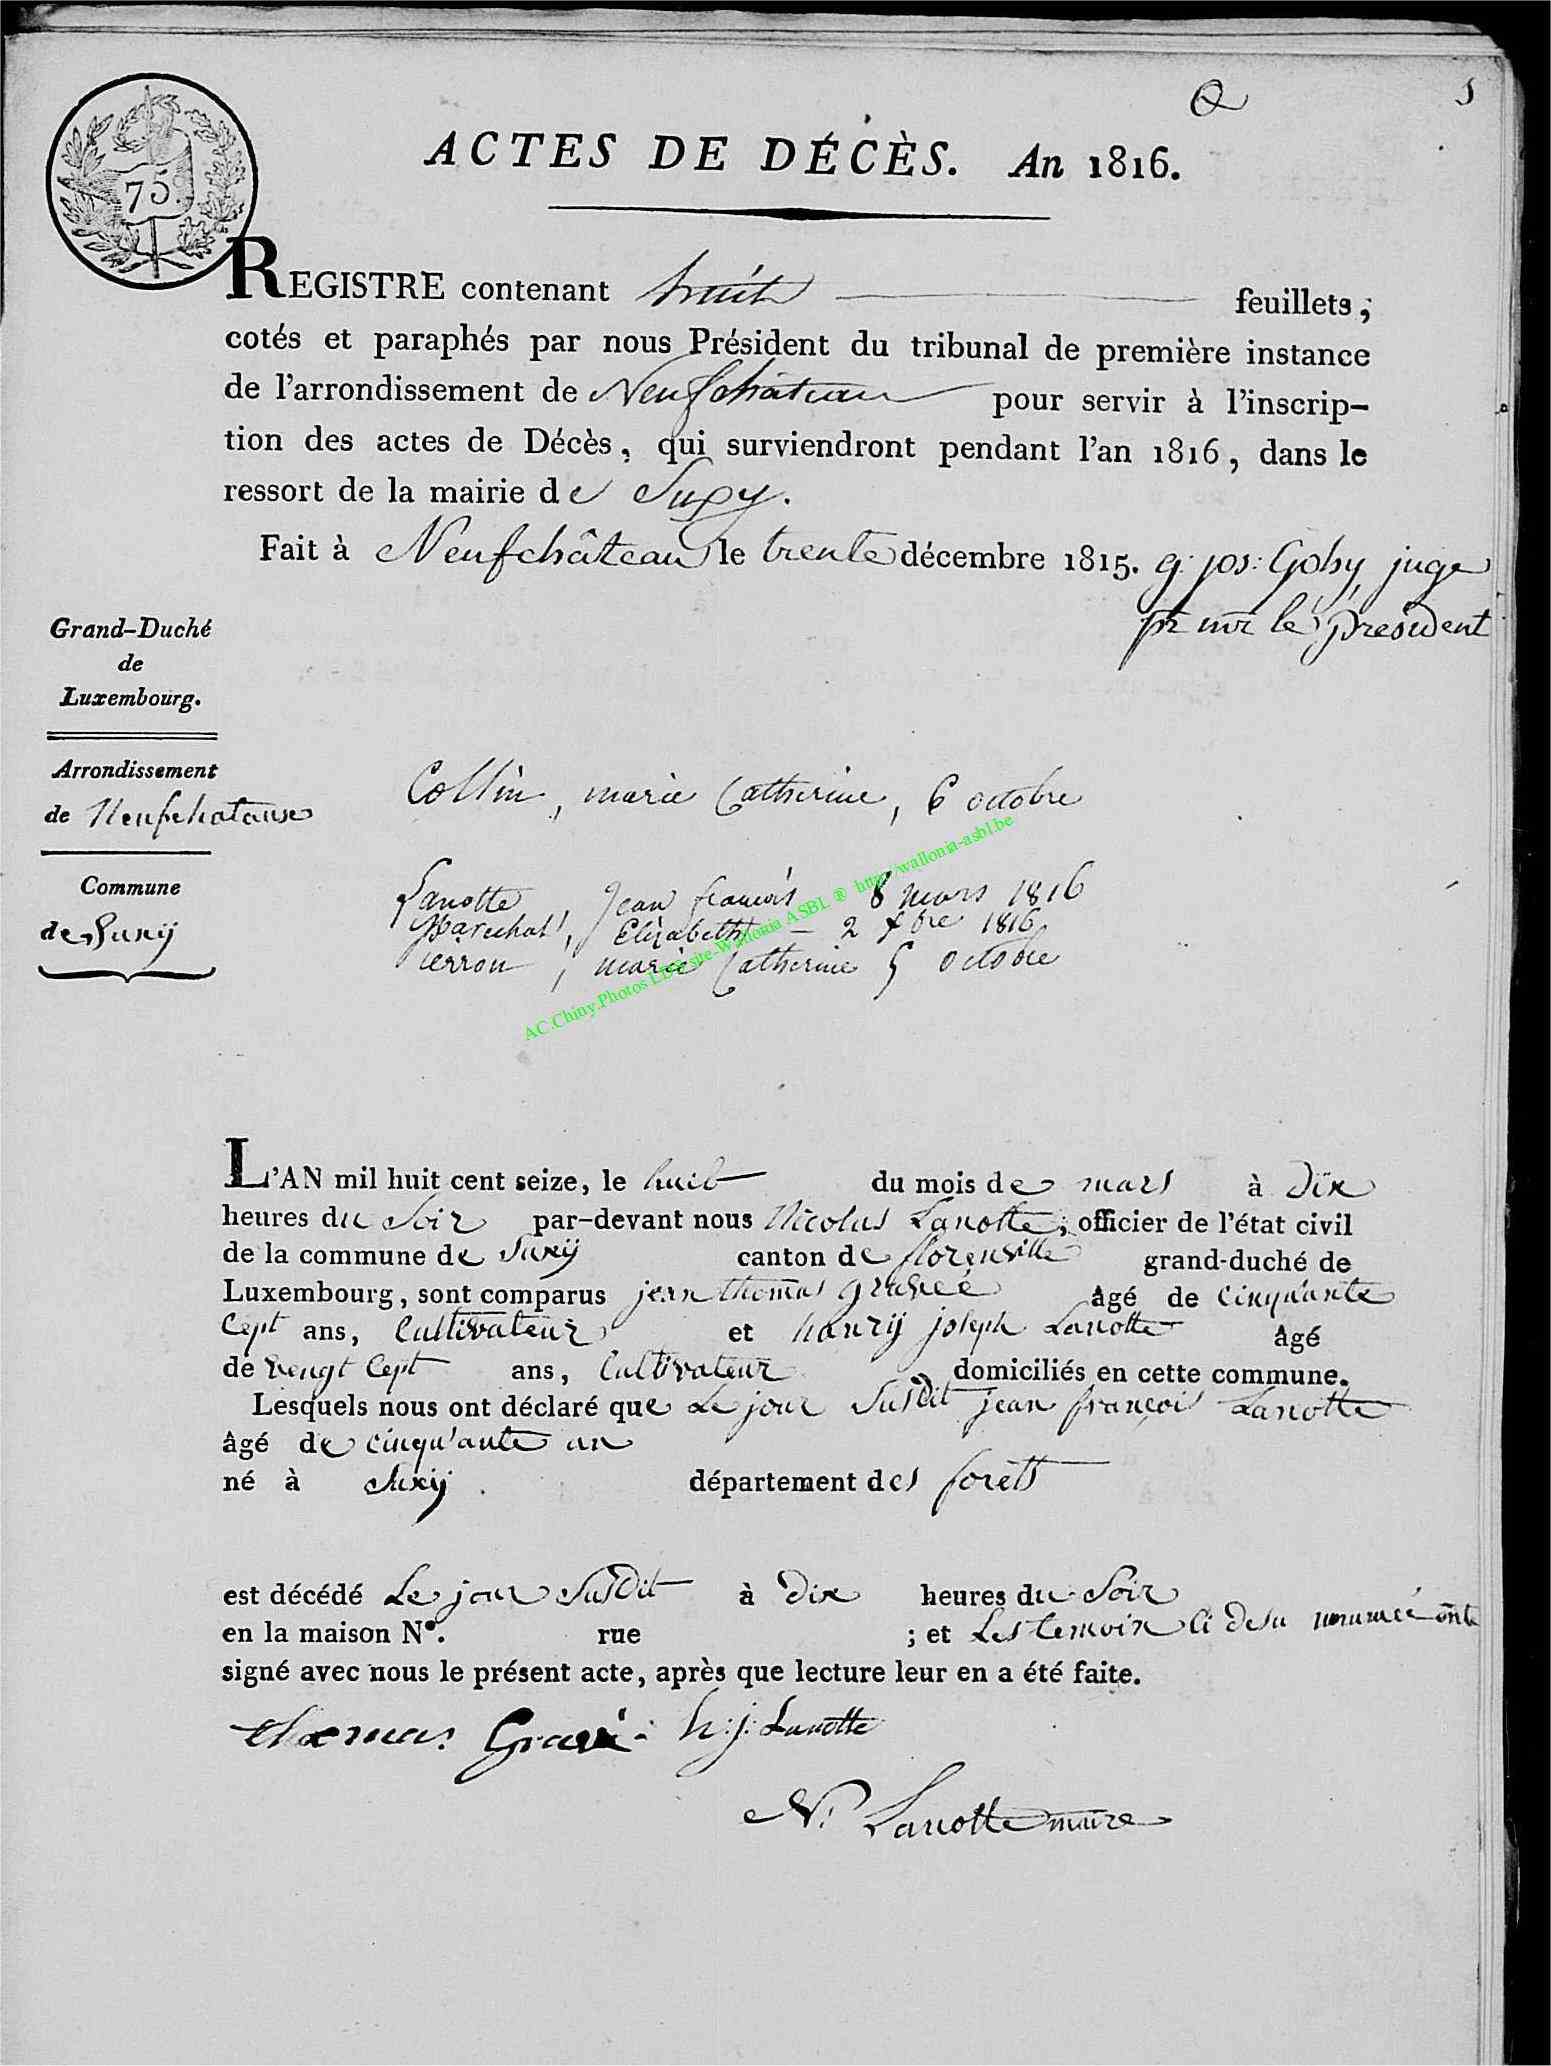 75
5
ACTES DE DÉCÈS. An 1816.
REGISTRE contenant huit feuillets;
cotés et paraphés par nous Président du tribunal de première instance
de l'arrondissement de Neufchâteau pour servir à l'inscrip-
tion des actes de Décès, qui surviendront pendant l'an 1816, dans le
ressort de la mairie de Suxy.
Fait à Neufchâteau le trente décembre 1815. g: jos: Goby, juge
le président
Grand-Duché
de
Luxembourg.
Arrondissement
de Neufchatause
Commune
de Suxij
Collin, marie Catherine, 6 octobre
Lanotte, Jean francois 8 mars 1816
Marechal, Elizabeth - 2 xbre 1816
Pierron, marie Catherine 5 octobre
AC.Chiny.Photos LDS site-Wallonia ASBL ® http://wallonia-asbl.be
L'AN mil huit cent seize, le huit du mois de mars à dix
heures du soir par-devant nous Nicolas Lanotte, officier de l'état civil
de la commune de Suxij canton de florenville grand-duché de
Luxembourg, sont comparus jean thomas gravée âgé de cinqu'ante
Cept ans, Cultivateur et hanrij joseph Lanotte âgé
de vengt Cept ans, Cultivateur domiciliés en cette commune.
Lesquels nous ont déclaré que Le jour Susdit jean françois Lanotte
âgé de cinqu'ante an
né à Suxij département des forêts
est décédé Le jour Susdit à dix heures du Soir
en la maison N°. rue ; et Les temoin Ci desu nommée ont
signé avec nous le présent acte, après que lecture leur en a été faite.
thomas Gravé h:j: Lanotte
N. Lanotte maire